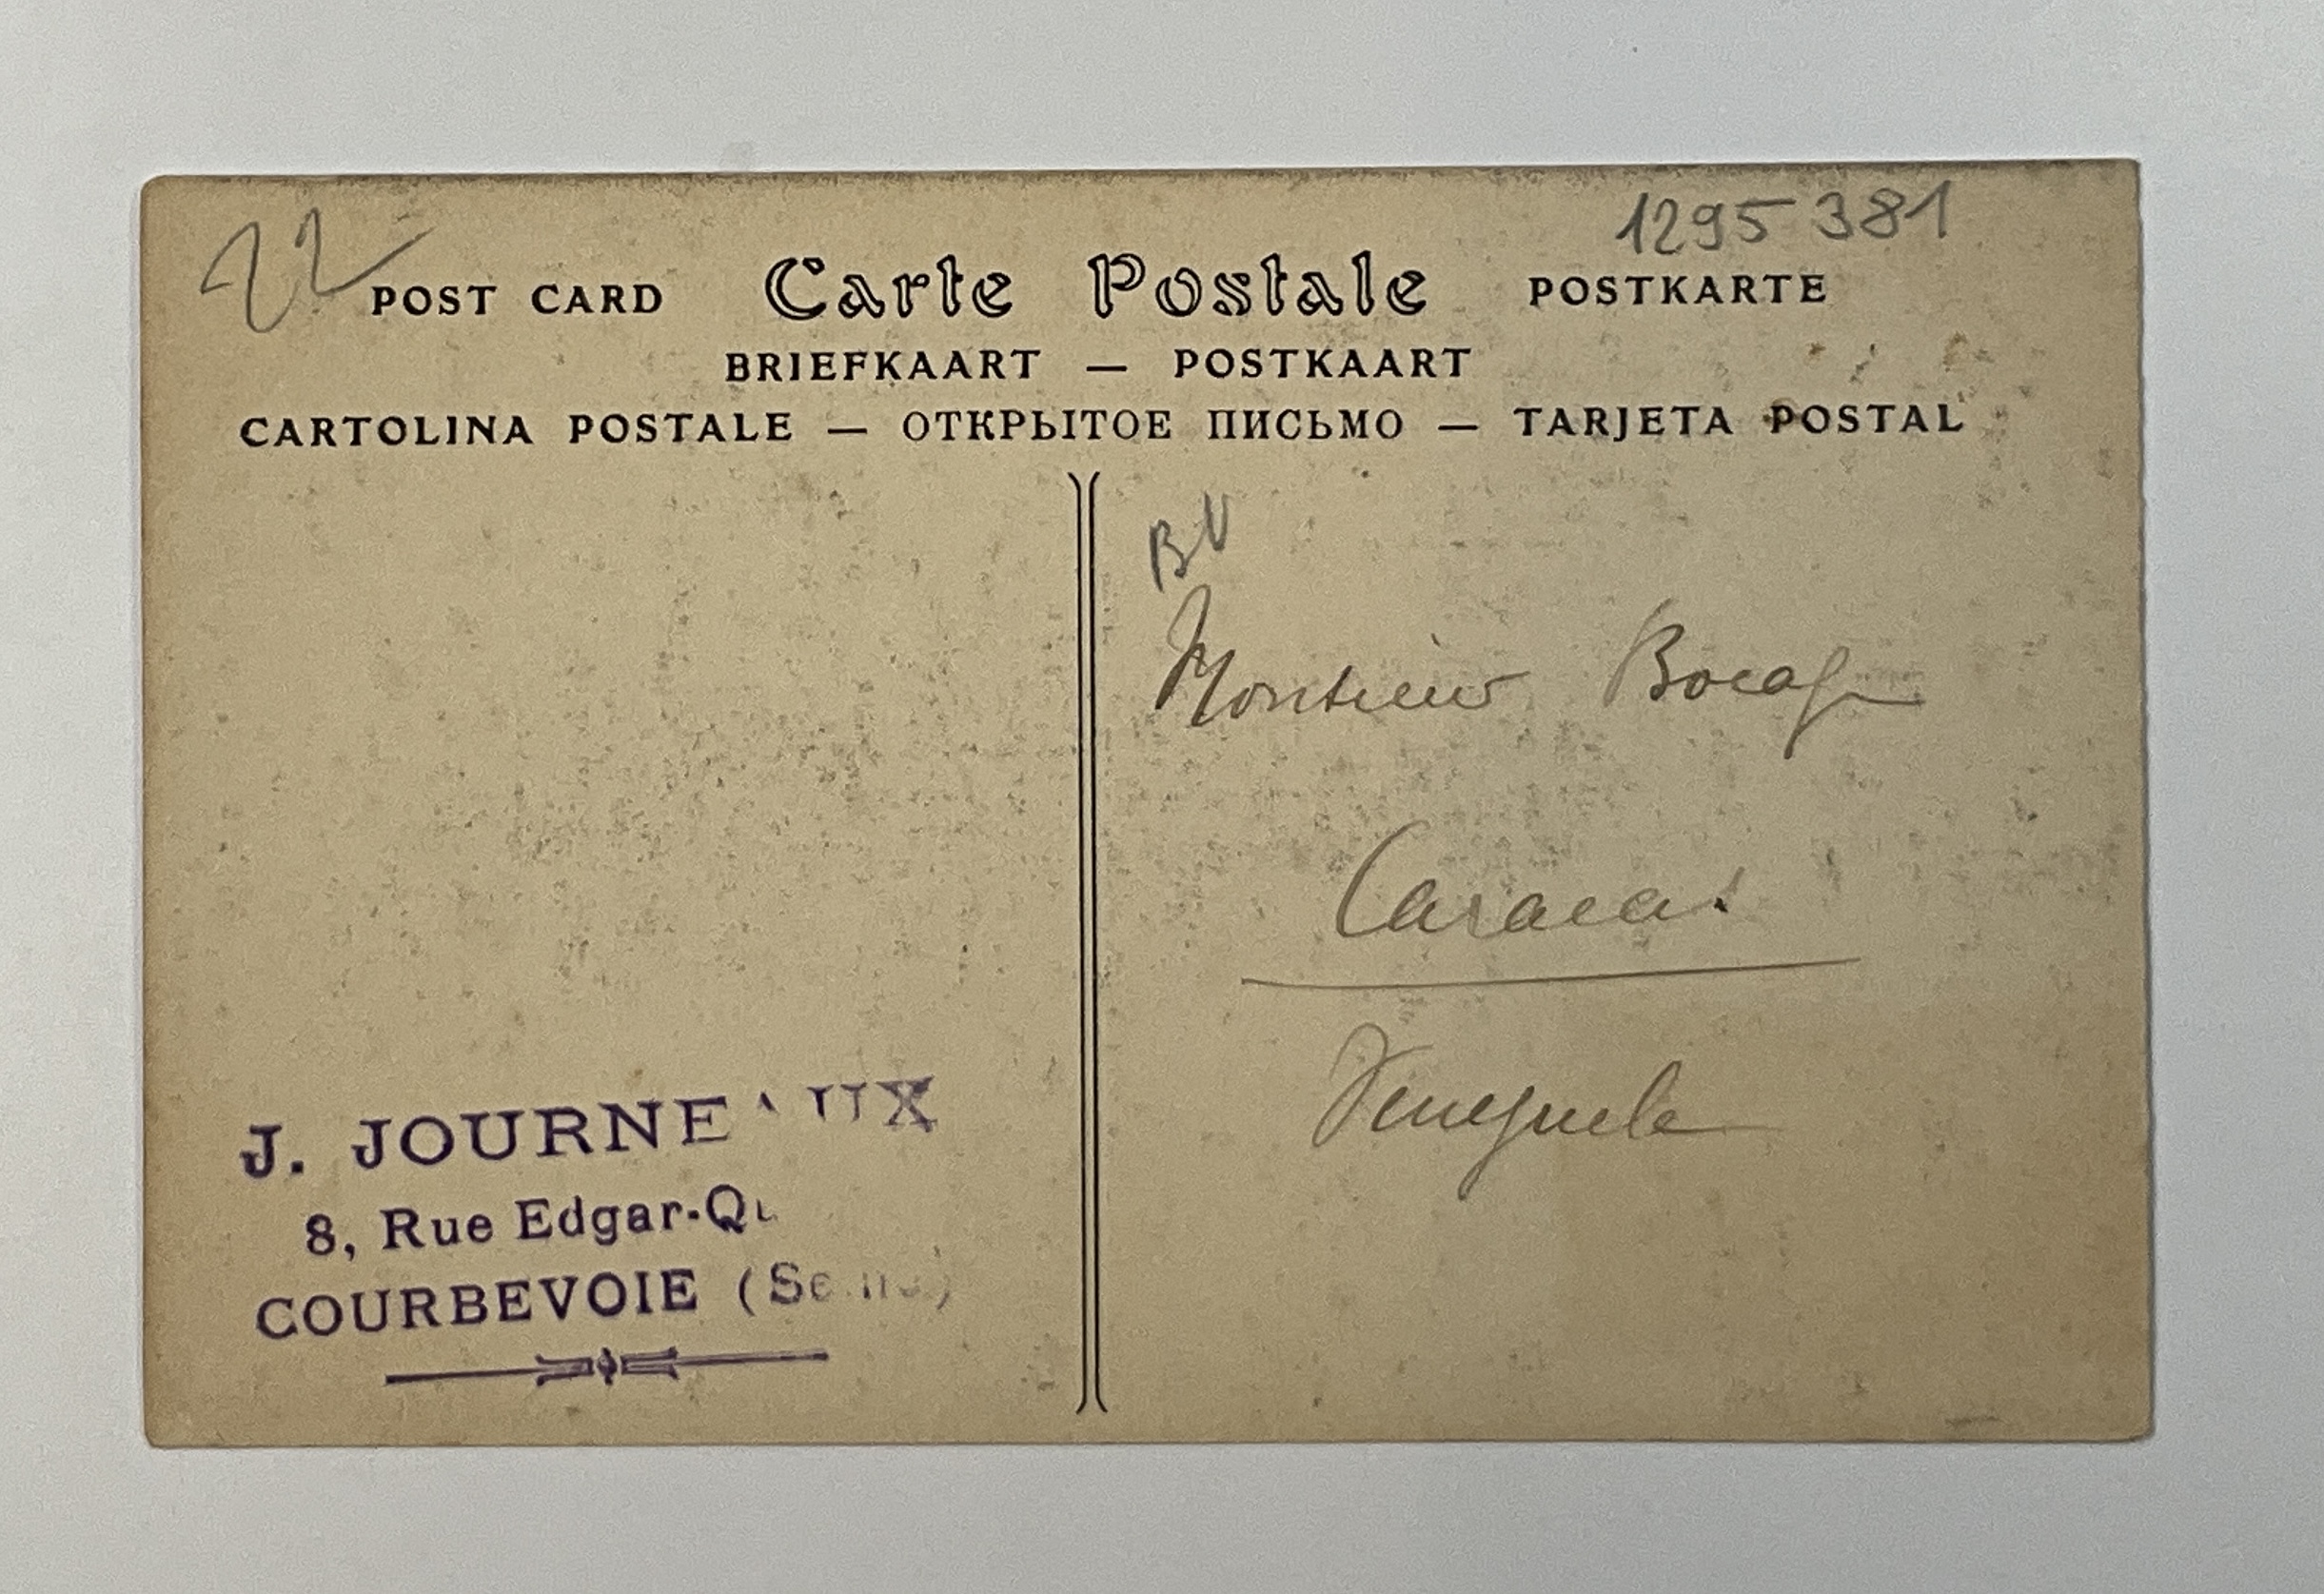 22
1295 381
POST CARD Carte Postale POSTKARTE
BRIEFKAART — POSTKAART
CARTOLINA POSTALE — ОТКРЫТОЕ ПИСЬМО — TARJETA POSTAL
BV
Monsieur Bocage
Caracas
Venezuela
J. JOURNEAUX
8, Rue Edgar-Qu
COURBEVOIE (Seine)